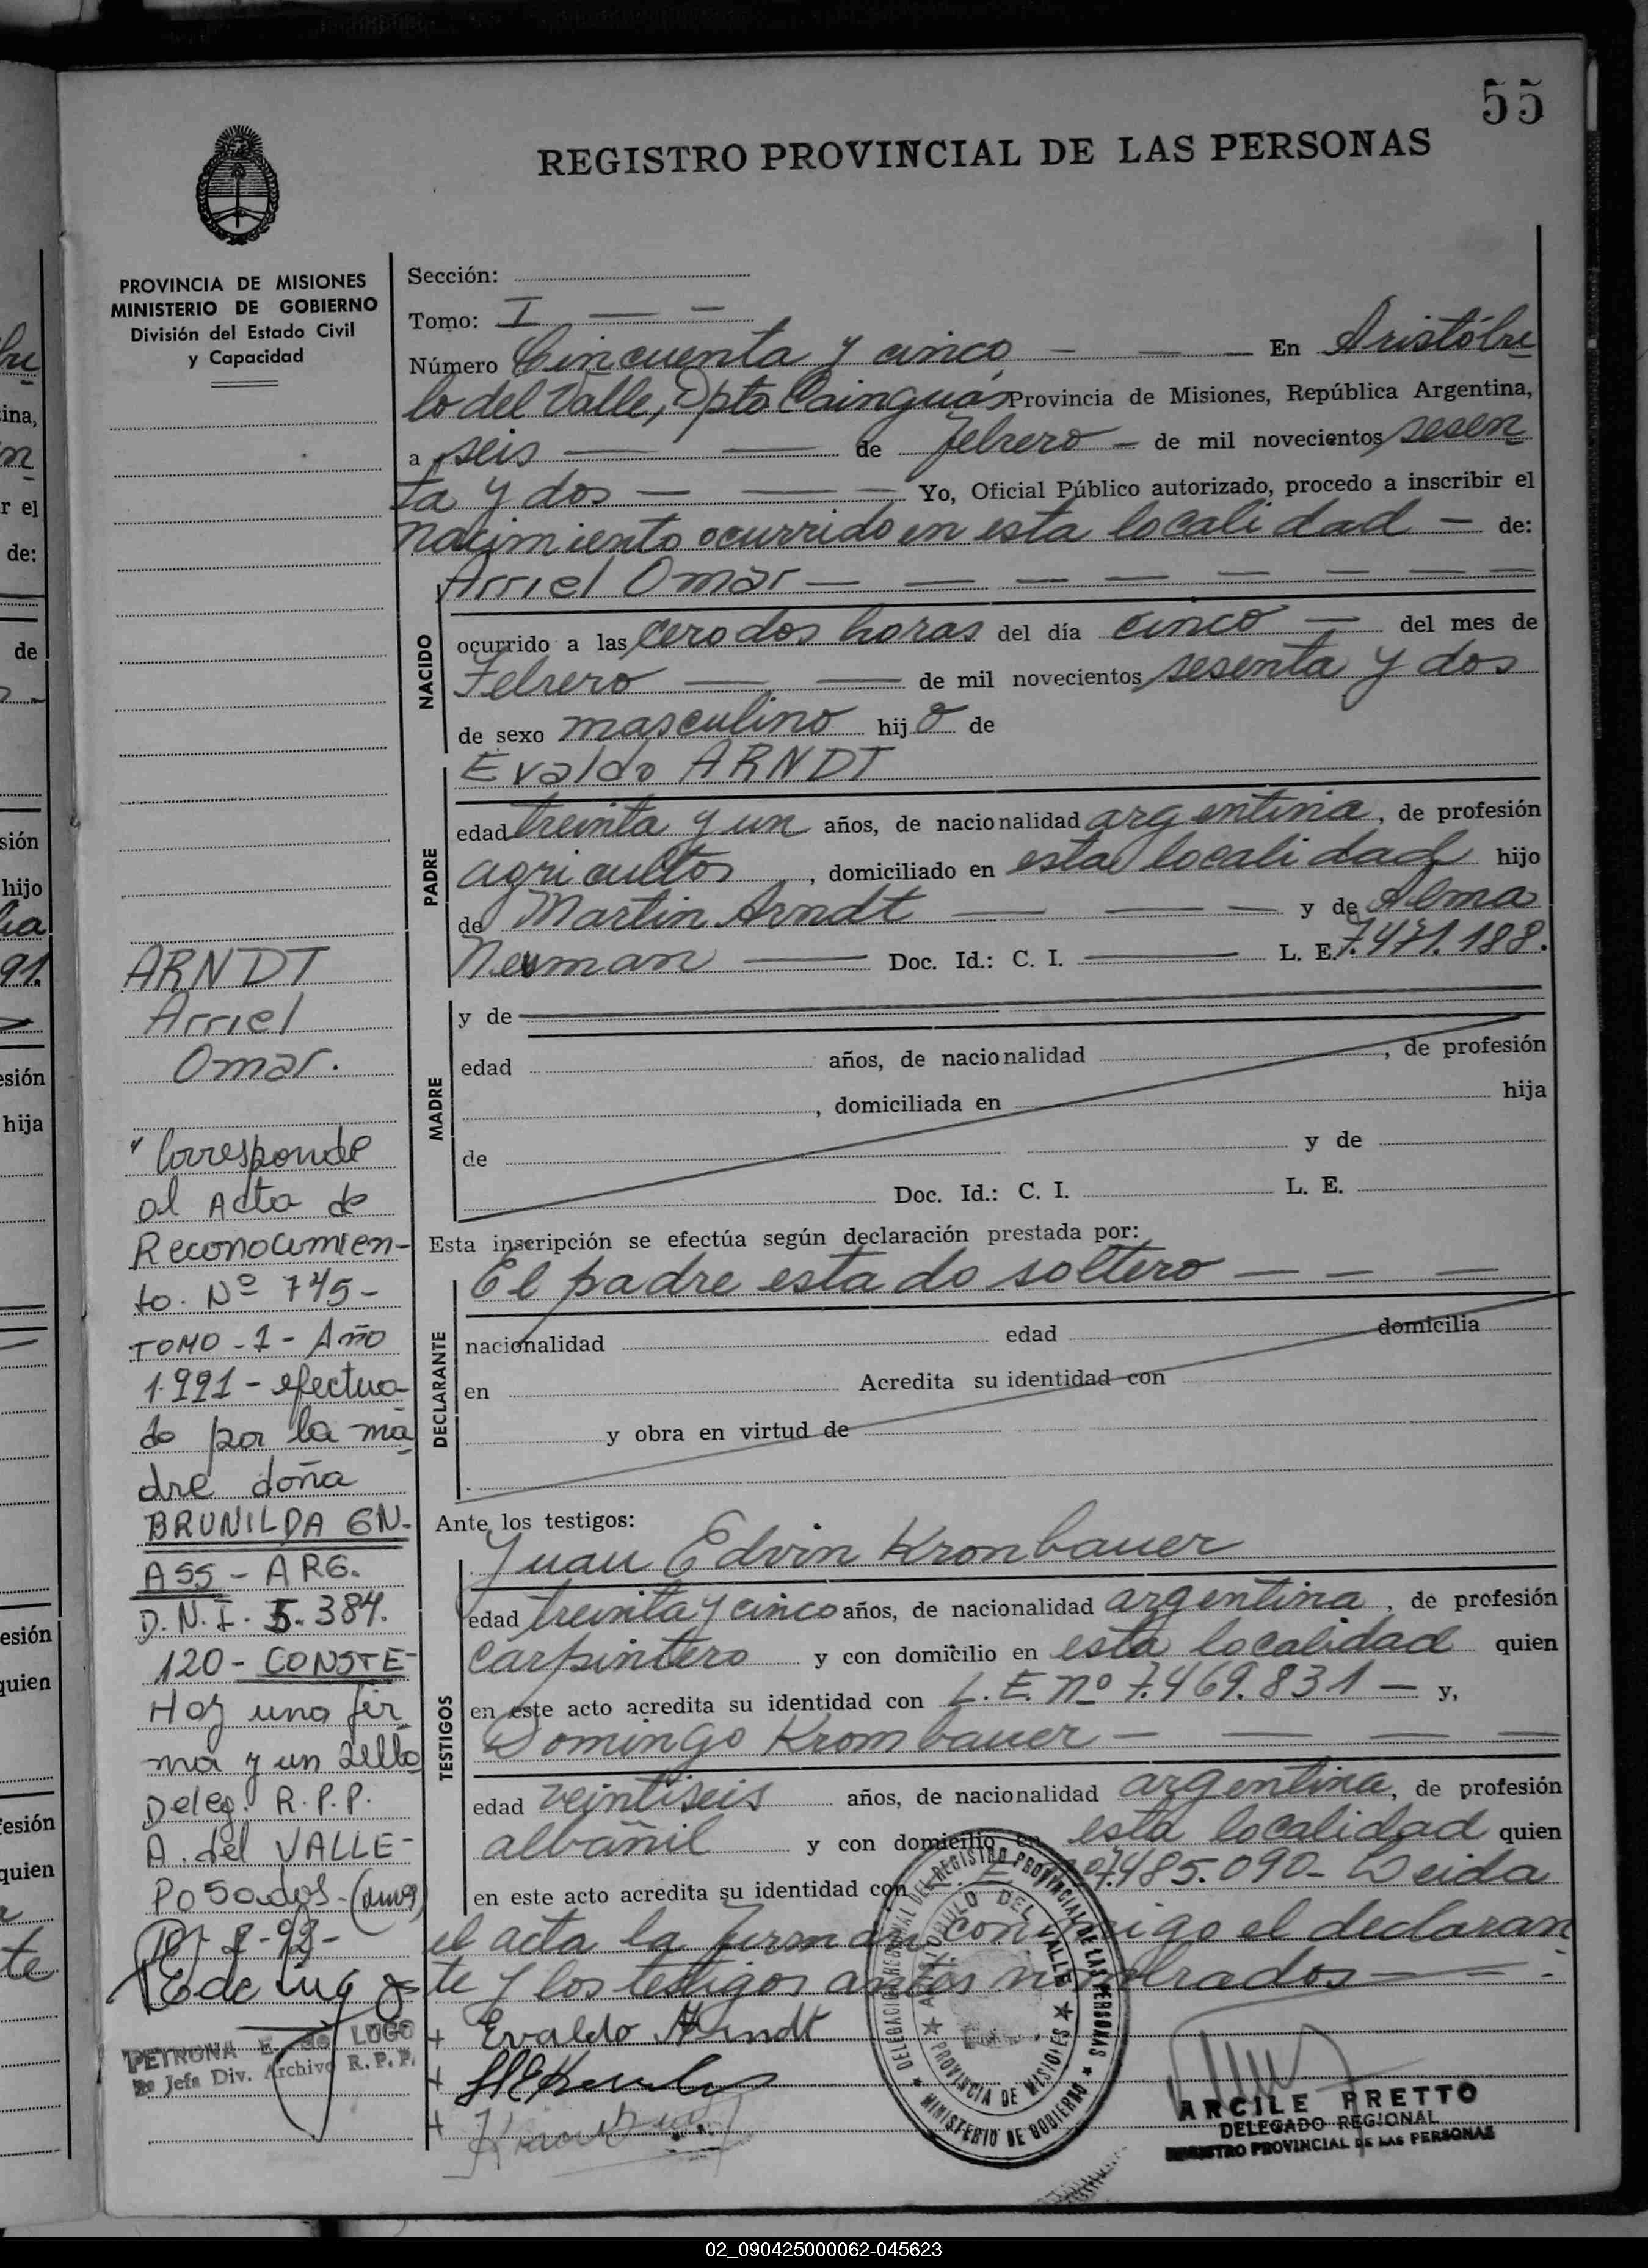 55
REGISTRO PROVINCIAL DE LAS PERSONAS
PROVINCIA DE MISIONES
MINISTERIO DE GOBIERNO
División del Estado Civil
y Capacidad
ARNDT
Arriel
Omar.
"Corresponde
al Acta de
Reconocimien-
to. Nº 745-
TOMO-1-Año
1.991-efectua
do por la ma
dre doña
BRUNILDA EN-
ASS-ARG.
D.N.I. 5.384.
120-CONSTE-
Hay una fir
ma y un sello
Deleg. R.P.P.
A. del VALLE-
Posadas-
E de Lugo
PETRONA E. de LUGO
2a Jefa Div. Archivo R. P. P.
Sección:
Tomo: I
Número Cincuenta y cinco En Aristóbu
lo del Valle, Dpto Cainguás Provincia de Misiones, República Argentina,
a seis de febrero de mil novecientos sesen
ta y dos Yo, Oficial Público autorizado, procedo a inscribir el
nacimiento ocurrido en esta localidad de:
Arriel Omar
NACIDO
ocurrido a las cero dos horas del día cinco del mes de
Febrero de mil novecientos sesenta y dos
de sexo masculino hijo de
Evaldo ARNDT
PADRE
edad treinta y un años, de nacionalidad argentina, de profesión
agricultor, domiciliado en esta localidad hijo
de Martin Arndt y de Alma
Neuman Doc. Id.: C. I. L. E. 7.471.188.
MADRE
y de
edad años, de nacionalidad , de profesión
, domiciliada en hija
de y de
Doc. Id.: C. I. L. E.
Esta inscripción se efectúa según declaración prestada por:
El padre estado soltero
DECLARANTE
nacionalidad edad domicilia
en Acredita su identidad con
y obra en virtud de
Ante los testigos:
Juan Edvin Kronbauer
TESTIGOS
edad treinta y cinco años, de nacionalidad argentina, de profesión
carpintero y con domicilio en esta localidad quien
en este acto acredita su identidad con L.E. nº 7.469.831 y,
Domingo Krombauer
edad veintiseis años, de nacionalidad argentina, de profesión
albañil y con domicilio en esta localidad quien
en este acto acredita su identidad con 7.485.090- Leida
el acta la firman conmigo el declaran
te y los testigos antes nombrados
Evaldo Arndt
DELEGACION REGIONAL DEL REGISTRO PROVINCIAL DE LAS PERSONAS
ARISTOBULO DEL VALLE
PROVINCIA DE MISIONES
MINISTERIO DE GOBIERNO
ARCILE PRETTO
DELEGADO REGIONAL
REGISTRO PROVINCIAL DE LAS PERSONAS
02_090425000062-045623